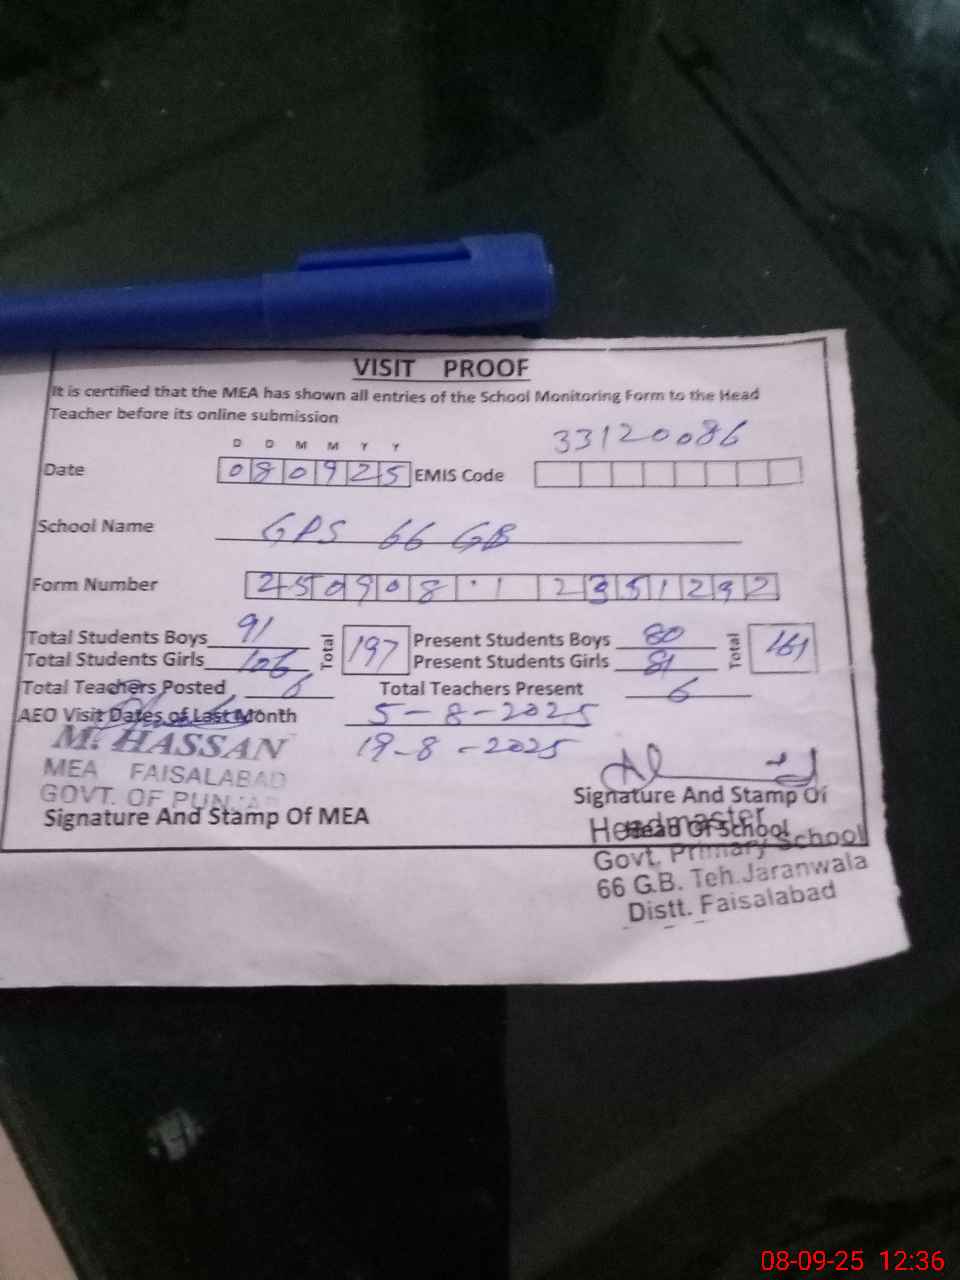 VISIT PROOF
It is certified that the MEA has shown all entries of the School Monitoring Form to the Head
Teacher before its online submission
D D M M Y Y
33120086
Date 080925 EMIS Code
School Name GPS 66 GB
Form Number 250908 1 2351292
Total Students Boys 91 Total 197 Present Students Boys 80 Total 161
Total Students Girls 106 Present Students Girls 81
Total Teachers Posted 6 Total Teachers Present 6
AEO Visit Dates of Last Month 5-8-2025
19-8-2025
M. HASSAN
MEA FAISALABAD
GOVT. OF PUNJAB
Signature And Stamp Of MEA
Signature And Stamp Of
Head Of School
Headmaster
Govt. Primary School
66 G.B. Teh.Jaranwala
Distt. Faisalabad
08-09-25 12:36